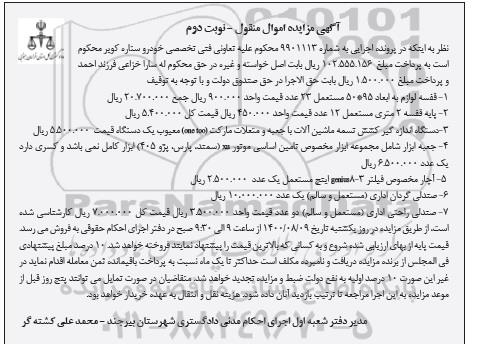 آگهی مزایده اموال منقول - نوبت دوم
نظر به اینکه در پرونده اجرایی به شماره ۹۹۰۱۱۱۳ محکوم علیه تعاونی فنی تخصصی خودرو ستاره کویر محکوم
است به پرداخت مبلغ ۱۰۲.۵۵۵.۱۵۶ ریال بابت اصل خواسته و غیره در حق محکوم له سارا خزاعی فرزند احمد
و پرداخت مبلغ ۱.۵۰۰.۰۰۰ ریال بابت حق الاجرا در حق صندوق دولت و با توجه به توقیف
۱- قفسه لوازم به ابعاد ۹۵*۵۰ مستعمل ۲۳ عدد قیمت واحد ۹۰۰.۰۰۰ ریال جمع ۲۰.۷۰۰.۰۰۰ ریال
۲- پایه قفسه ۲ متری مستعمل ۱۲ عدد قیمت واحد ۴۵۰.۰۰۰ ریال قیمت کل ۵.۴۰۰.۰۰۰ ریال
۳-دستگاه اندازه گیر کشش تسمه ماشین آلات با جعبه و متعلات مارکت (one too) معیوب یک دستگاه قیمت ۵.۵۰۰.۰۰۰ ریال
۴- جعبه ابزار شامل مجموعه ابزار مخصوص تامین اساسی موتور xu (سمند، پارس، پژو ۴۰۵) ابزار کامل نمی باشد و کسری دارد
یک عدد ۶.۵۰۰.۰۰۰ ریال
۵- آچار مخصوص فیلتر genius۸-۳ اینچ مستعمل یک عدد ۲.۵۰۰.۰۰۰ ریال
۶- صندلی گردان اداری (مستعمل و سالم) یک عدد ۱۰.۰۰۰.۰۰۰ ریال
۷- صندلی راحتی اداری (مستعمل و سالم) دو عدد قیمت واحد ۳.۵۰۰.۰۰۰ ریال قیمت کل ۷.۰۰۰.۰۰۰ ریال کارشناسی شده
است، از طریق مزایده در روز یکشنبه تاریخ ۱۴۰۰/۰۸/۰۹ از ساعت ۹ الی ۹:۳۰ صبح در دفتر اجرای احکام حقوقی به فروش می رسد.
قیمت پایه از بهای ارزیابی شده شروع و به کسانی که بالاترین قیمت را پیشنهاد نمایند فروخته خواهد شد. ۱۰ درصد مبلغ پیشنهادی
فی المجلس از برنده مزایده دریافت و نامبرده مکلف است حداکثر تا یک ماه نسبت به پرداخت باقیمانده ثمن معامله اقدام نماید در
غیر این صورت ۱۰ درصد اولیه به نفع دولت ضبط و مزایده تجدید خواهد شد. متقاضیان در صورت تمایل می توانند پنج روز قبل از
موعد مزایده به این اجرا مراجعه تا ترتیب بازدید آنان داده شود. هزینه نقل و انتقال به عهده خریدار خواهد بود.
مدیر دفتر شعبه اول اجرای احکام مدنی دادگستری شهرستان بیرجند - محمد علی کشته گر